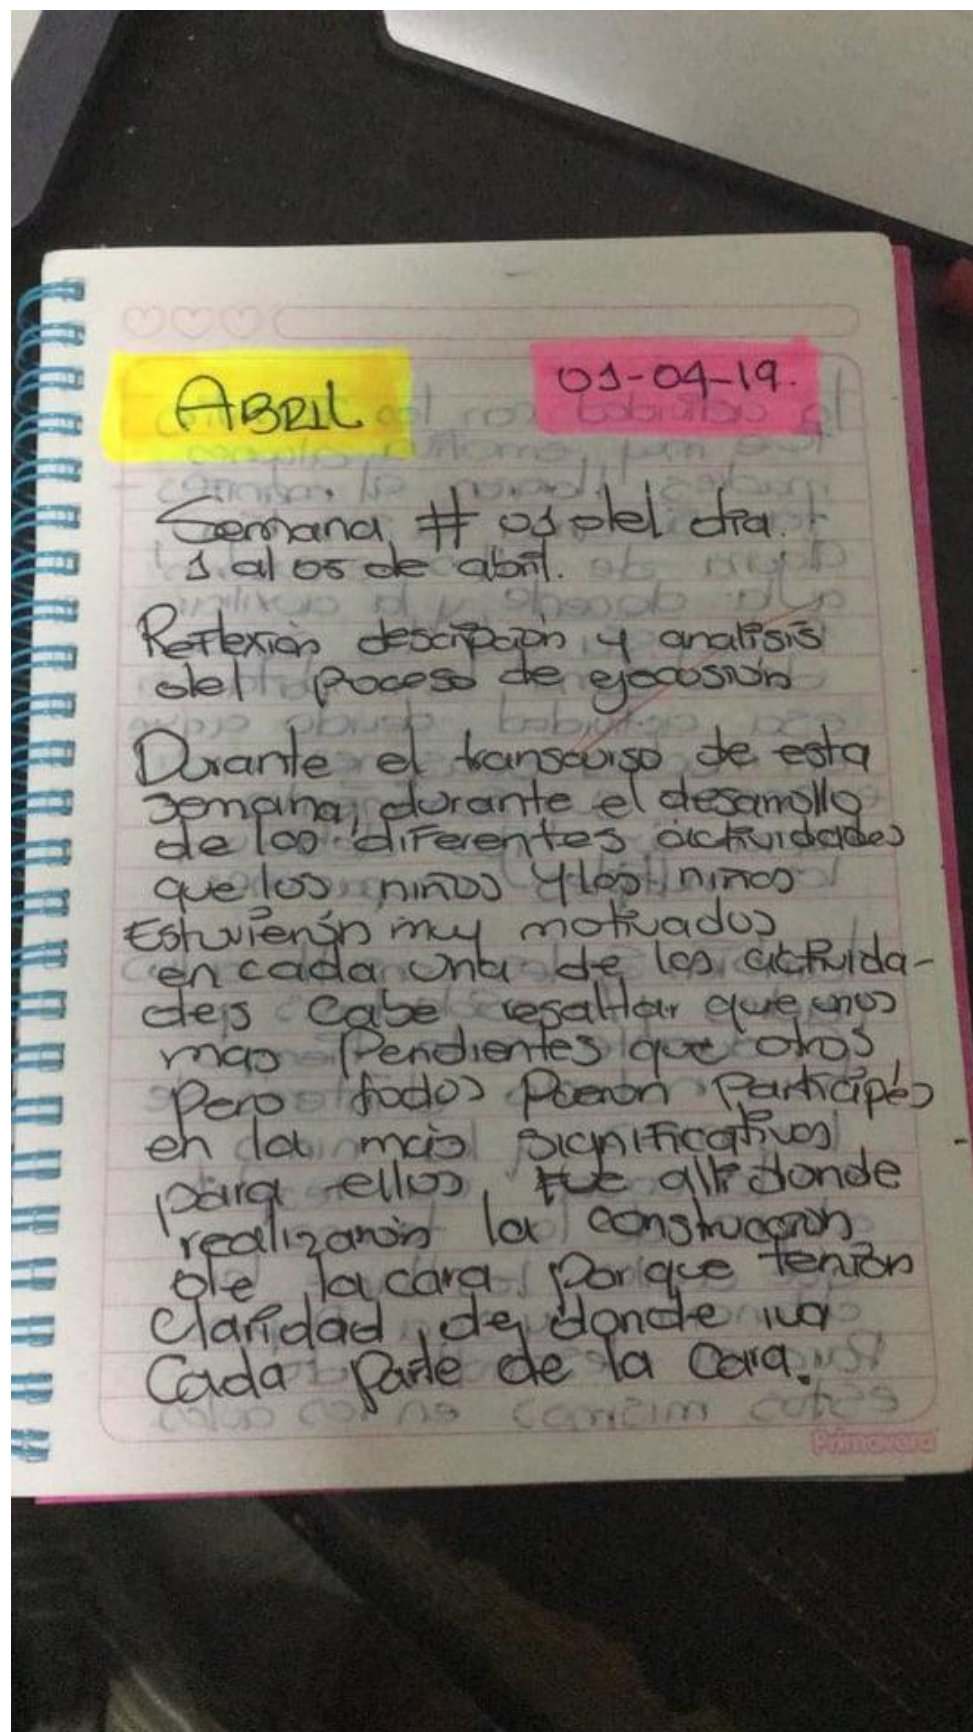 ABRIL
01-04-19.
Semana # 01 del dia.
1 al 05 de abril.
Reflexión descripción y analisis
del proceso de ejecosión
Durante el transcurso de esta
semana, durante el desarrollo
de los diferentes actividades
que los niños y los niños
Estuvierón muy motivados
en cada una de las activida-
des Cabe resaltar que unos
mas Pendientes que otros,
Pero todos Fueron Participés
en la mas significativos
para ellos, Fue alli donde
realizarón la construcción
de la cara Porque tenián
claridad de donde iva
Cada parte de la Cara.
Primavera